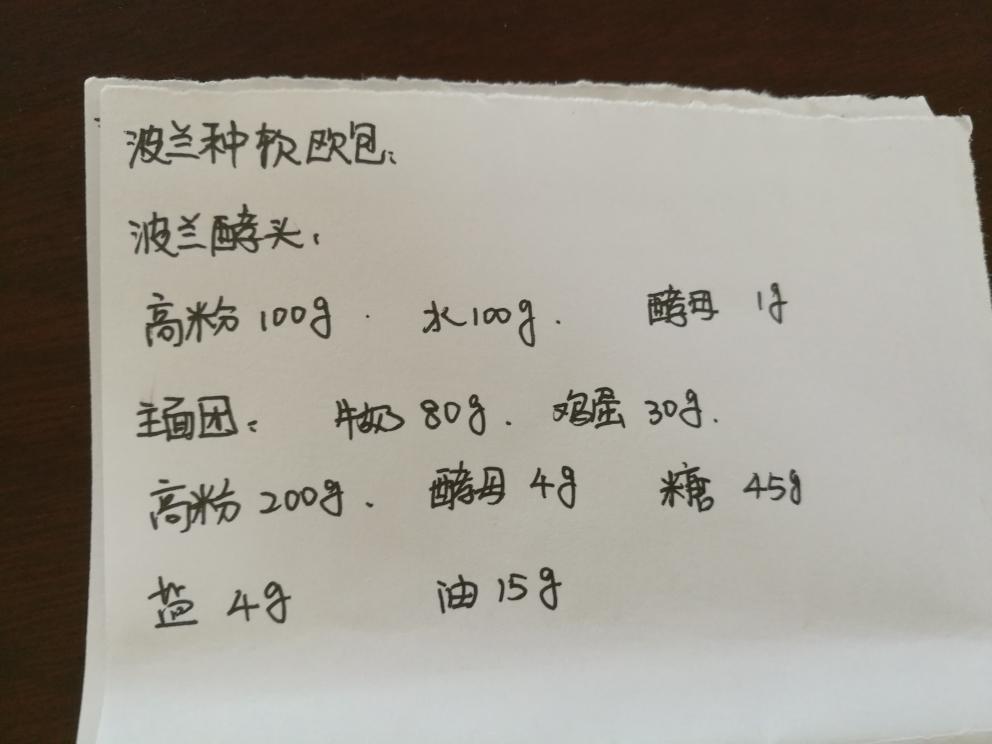 波兰种软欧包：
波兰酵头：
高粉100g. 水100g. 酵母 1g
主面团： 牛奶 80g. 鸡蛋 30g.
高粉 200g. 酵母 4g 糖 45g
盐 4g 油 15g